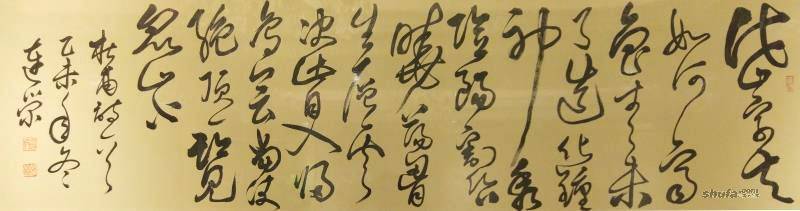 岱宗夫
如何齊
魯青未
了造化鍾
神秀
陰陽割昏
曉蕩胸
生層雲
決眥入歸
鳥會當凌
絕頂一覽
眾山小
杜甫詩一首
乙未年冬
連榮